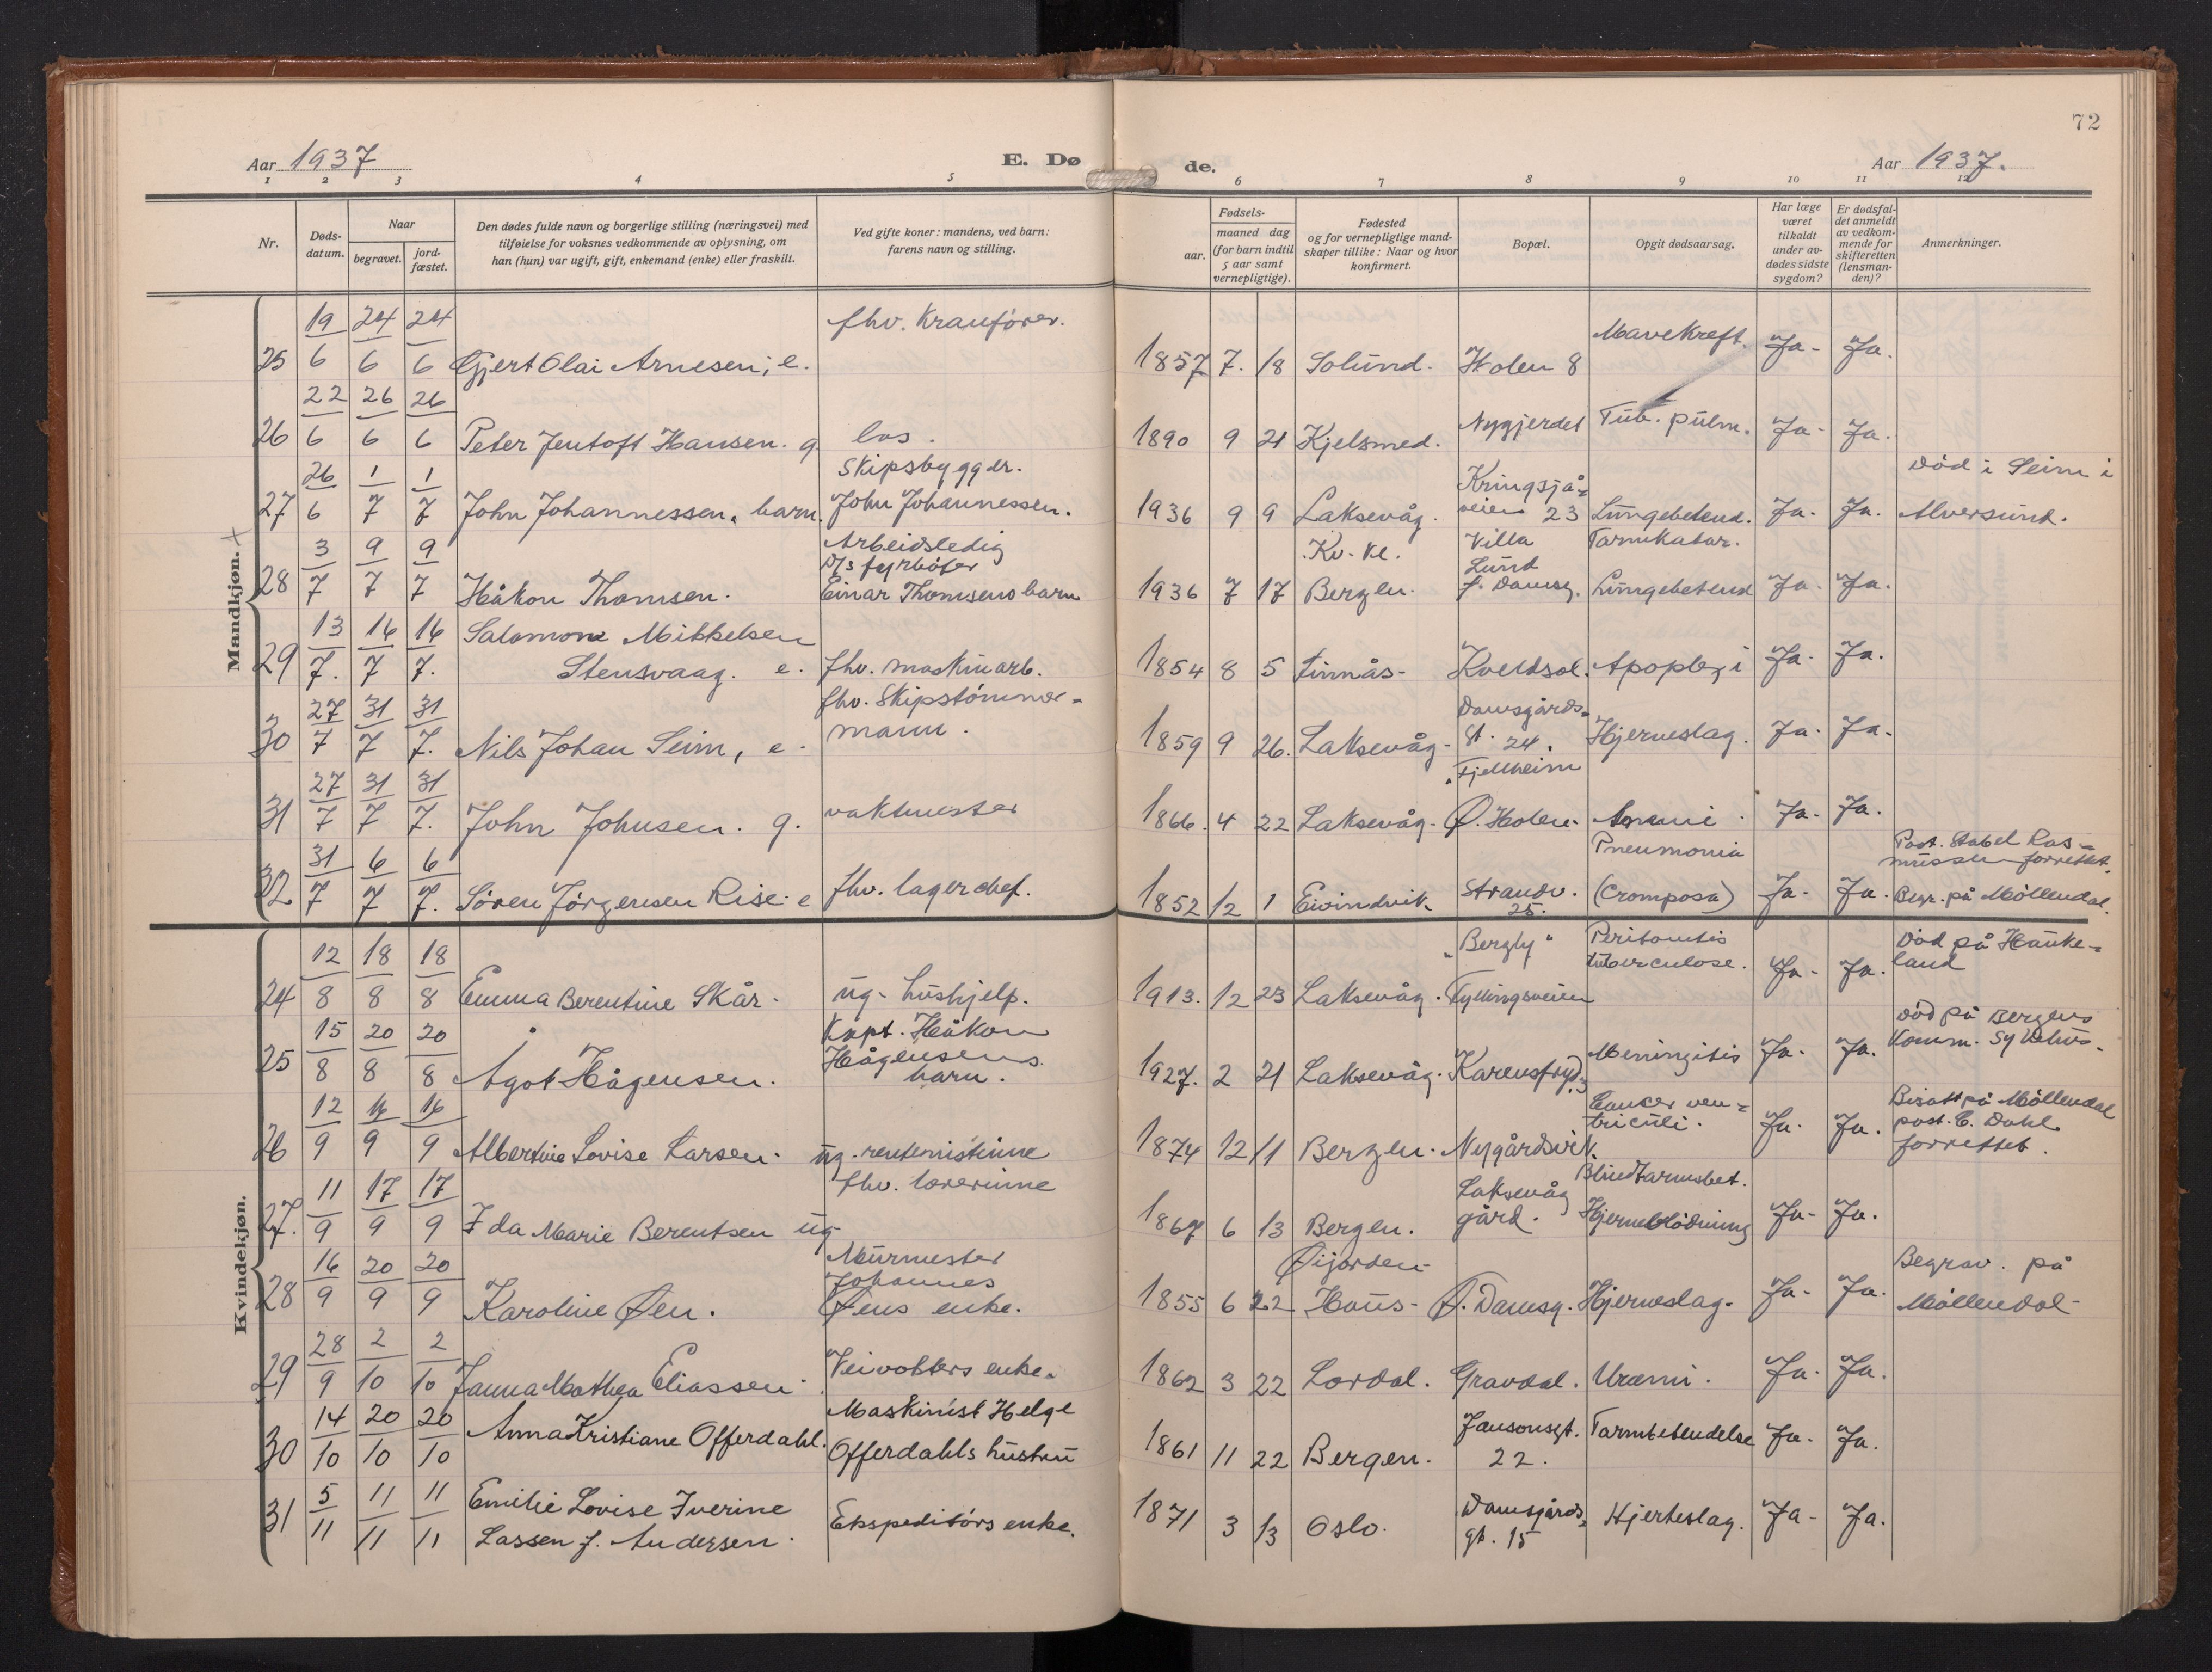 72
Aar 1937
E. Dø
de.
Aar 1937.
1 2 3 4 5 6 7 8 9 10 11 12
Nr.
Døds-
datum.
Naar
begravet.
jord-
fæstet.
Den dødes fulde navn og borgerlige stilling (næringsvei) med
tilføielse for voksnes vedkommende av oplysning, om
han (hun) var ugift, gift, enkemand (enke) eller fraskilt.
Ved gifte koner: mandens, ved barn:
farens navn og stilling.
Fødsels-
aar.
maaned dag
(for barn indtil
5 aar samt
vernepligtige).
Fødested
og for vernepligtige mand-
skaper tillike: Naar og hvor
konfirmert.
Bopæl.
Opgit dødsaarsag.
Har læge
været
tilkaldt
under av-
dødes sidste
sygdom?
Er dødsfal-
det anmeldt
av vedkom-
mende for
skifteretten
(lensman-
den)?
Anmerkninger.
Mandkjøn.
25 19/6 24/6 24/6 Gjert Olai Arnesen, e. fhv. Kranfører. 1857 7. 18 Solund. Holen 8 Mavekreft. Ja- Ja.
26 22/6 26/6 26/6 Peter Jentoft Hansen. g. los. 1890 9 21 Kjelsmed. Nygjerdet Tub. pulm. Ja- Ja.
27 26/6 1/7 1/7 John Johannessen, barn. Skipsbygger.
John Johannessen. 1936 9 9 Laksevåg. Kringsjå-
veien 23 Lungebetend. Ja- Ja. Död i Seim i
Alversund.
28 3/7 9/7 9/7 Håkon Thomsen. Arbeidsledig
D/s fyrbøter
Einar Thomsens barn 1936 7 17 Kv. Kl.
Bergen. Villa
Lund
f. Damsg. Tarmkatar.
Lungebetend Ja- Ja.
29 13/7. 16/7 16/7. Salomon Mikkelsen
Stensvaag. e. fhv. maskinarb. 1854 8 5 Finnås- Kveldsol. Apoplexi Ja- Ja.
30 27/7 31/7 31/7. Nils Johan Seim, e. fhv. Skipstømmer-
mann. 1859 9 26. Laksevåg- Damsgårds-
gt. 24. Hjerneslag. Ja- Ja-
31 27/7 31/7 31/7. John Johnsen. g. vaktmester 1866. 4 22 Laksevåg- "Fjellheim
Ø. Holen- Anemi. Ja- Ja.
32 31/7 6/7 6/7. Sören Jörgensen Rise. e fhv. lagerchef. 1852 12 1 Eivindvik Strandv.
25. Pneumonia
(Cromposa) Ja- Ja. Past. Stabel Ras-
mussen forrettet.
Begr. på Möllendal.
Kvindekjøn.
24 12/8 18/8 18/8 Emma Berentine Skår. ug. hushjelp. 1913. 12 23 Laksevåg. "Bergly"
Fyllingsveien Peritonitis
tuberculose. Ja- Ja. Död på Hauke-
land
25 15/8 20/8 20/8 Ågot Hågensen. Kapt. Håkon
Hågensens
barn. 1927. 2 21 Laksevåg. Karensfryd. Meningitis Ja- Ja. Död på Bergens
Komm. Sykehus.
26 12/9 16/9 16/9 Albertine Lovise Larsen. ug. rentenistinne 1874 12 11 Bergen. Nygårdsvik. Cancer ven-
triculi. Ja- Ja. Bisatt på Möllendal
past. C. Dahl
forrettet.
27. 11/9 17/9 17/9 Ida Marie Berentsen ug fhv. lærerinne 1867 6 13 Bergen. Laksevåg
gård. Blindtarmsbet.
Hjerneblödning Ja- Ja.
28 16/9 20/9 20/9 Karoline Øen. Murmester
Johannes
Øens enke. 1855 6 22 Øijorden-
Haus- Ø. Damsg. Hjerneslag. Ja- Ja. Begrav. på
Möllendal-
29 28/9 2/10 2/10 Janna Mathea Eliassen. Veivokters enke. 1862 3 22 Lærdal. Gravdal. Uræmi. Ja- Ja.
30 14/10 20/10 20/10 Anna Kristiane Offerdahl. Maskinist Helge
Offerdahls hustru 1861 11 22 Bergen. Jansonsgt.
22. Tarmbetendelse Ja- Ja.
31 5/11 11/11 11/11 Emilie Lovise Iverine
Lassen f. Andersen. Ekspeditörs enke. 1871 3 13 Oslo. Damsgårds-
gt. 15 Hjerteslag. Ja- Ja.